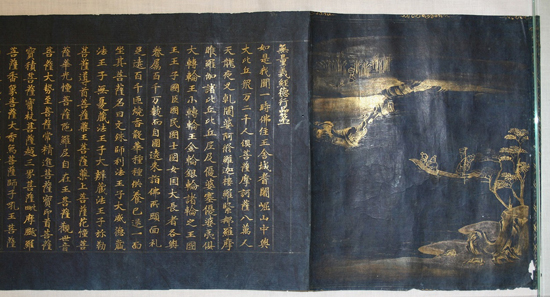 無量義經德行品第一
如是我聞一時佛住王舍城耆闍崛山中與
大比丘衆万二千人俱菩薩摩訶薩八万人
天龍夜叉乾闥婆阿修羅迦樓羅緊那羅摩
睺羅伽諸比丘比丘尼及優婆塞優婆夷俱
大轉輪王小轉輪王金輪銀輪諸輪之王國
王王子國臣國民國士國女國大長者各與
眷屬百千万數而自圍遶來詣佛所頭面礼
足遶百千匝燒香散華種種供養已退一面
坐其菩薩名曰文殊師利法王子大威德藏
法王子無憂藏法王子大辯藏法王子弥勒
菩薩導首菩薩藥王菩薩藥上菩薩花幢菩
薩華光幢菩薩陀羅尼自在王菩薩觀世音
菩薩大勢至菩薩常精進菩薩寶印首菩薩
寶積菩薩寶杖菩薩越三界菩薩毗摩颰羅
菩薩香象菩薩大香象菩薩師子吼王菩薩